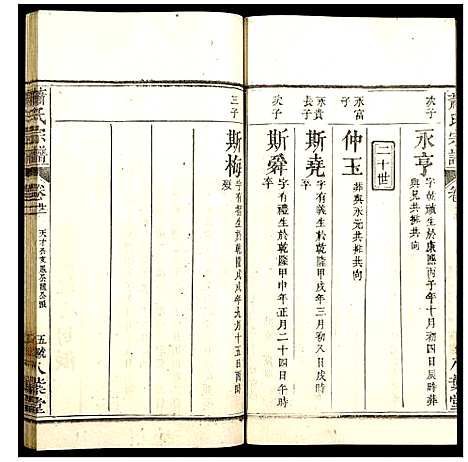 蕭氏宗譜
次子
永亨
字乾禎生於康熙丙子年十月初四日辰時葬
與兄共排共向
二十世
永富
子
仲玉
葬與永元共排共向
永貴
長子
斯堯
字有義生於乾隆甲戌年三月初八日戌時
卒
次子
斯舜
字有禮生於乾隆甲申年正月二十四日午時
卒
三子
斯梅
字有
生於乾隆戊戌年九月十五日酉時
蕭氏宗譜
卷廿二
五號
八葉堂